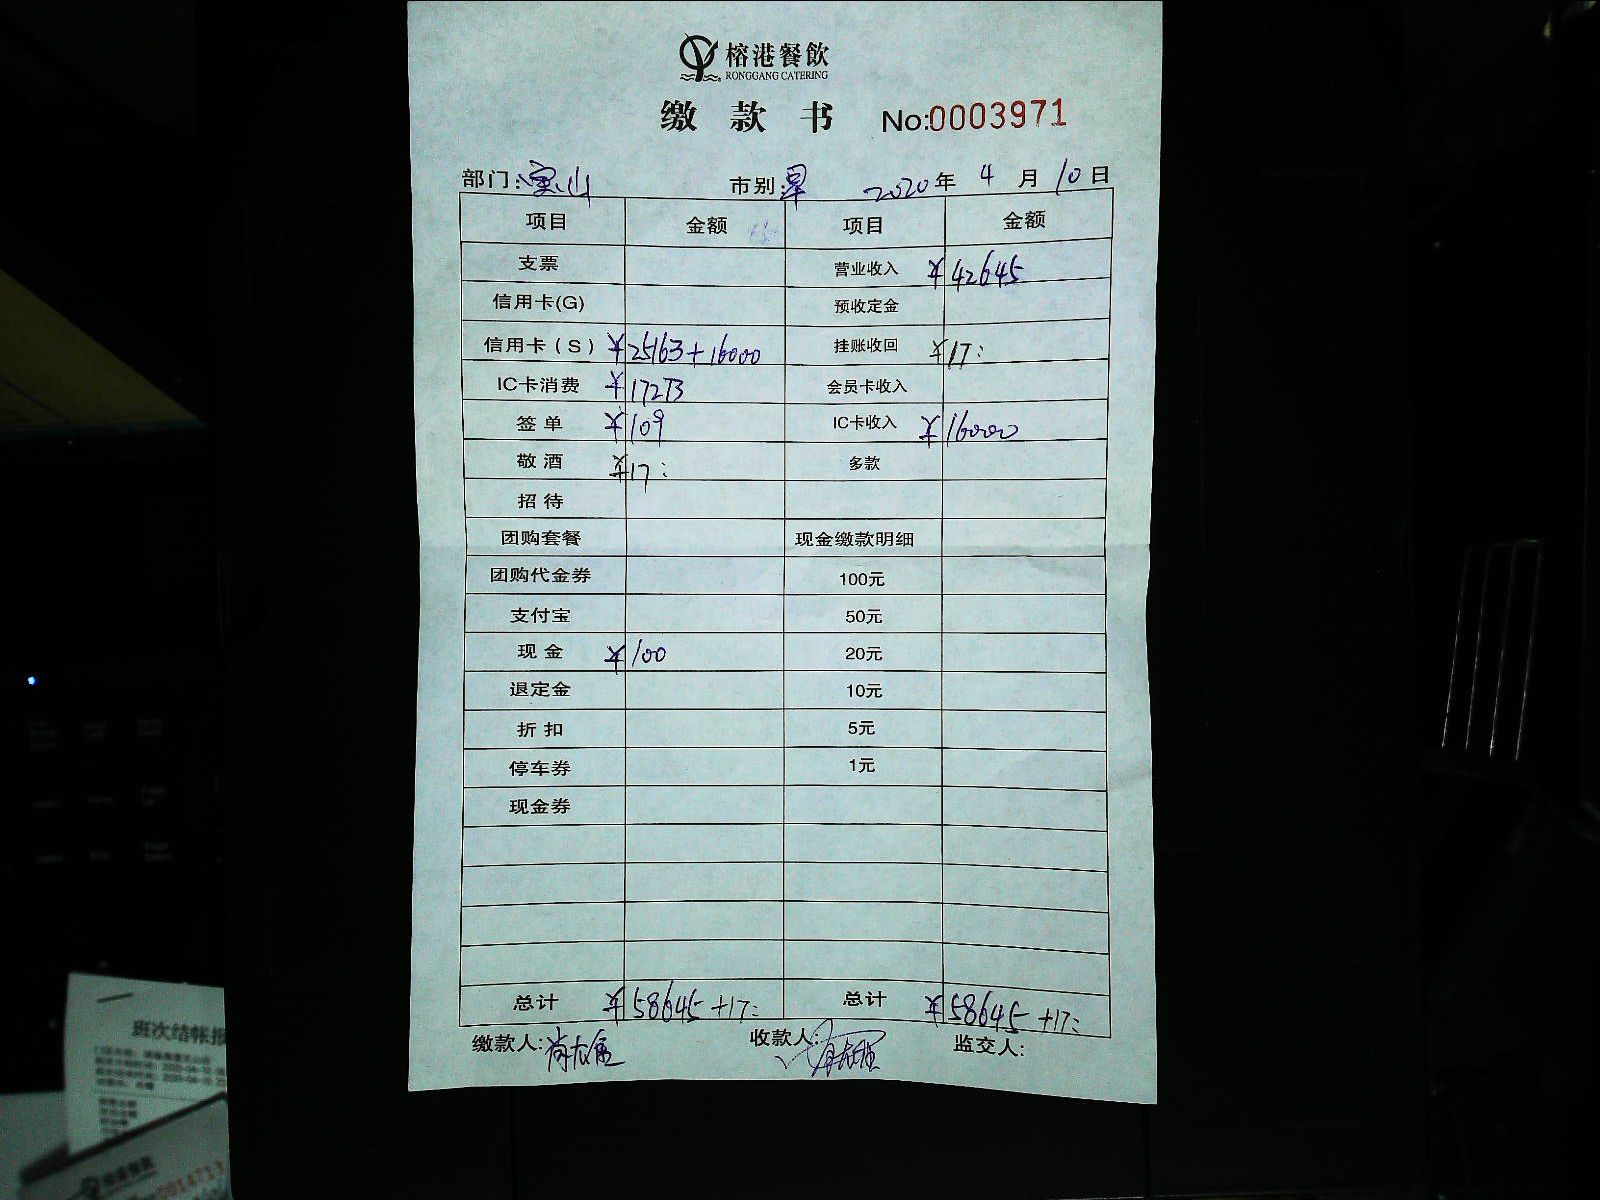 榕港餐飲
RONGGANG CATERING
缴款书 No:0003971
部门:宝山 市别:早 2020年4月10日
项目 金额 项目 金额
支票 营业收入 ¥42645
信用卡(G) 预收定金
信用卡(S) ¥25163+16000 挂账收回 ¥17:
IC卡消费 ¥17273 会员卡收入
签单 ¥109 IC卡收入 ¥16000
敬酒 ¥17: 多款
招待
团购套餐 现金缴款明细
团购代金券 100元
支付宝 50元
现金 ¥100 20元
退定金 10元
折扣 5元
停车券 1元
现金券
总计 ¥58645+17: 总计 ¥58645+17:
缴款人: 收款人: 监交人:
班次结帐报
榕港餐飲
0014713